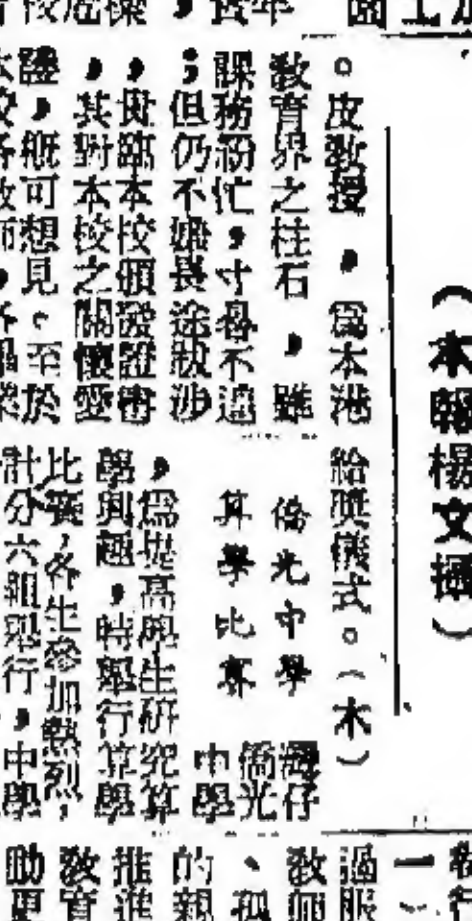 （本報楊文攝）
。皮教授，爲本港
教育界之柱石，雖
課務紛忙，寸晷不遑
；但仍不嫌長途跋涉
，贲臨本校頒發證書
，其對本校之關懷愛
護，槪可想見。至於
給獎儀式。（木）
僑光中學
算學比賽
灣仔
僑光
中學
，爲提高學生研究算
學興趣，時舉行算學
比賽，各生參加熱烈，
計分六組舉行，中學